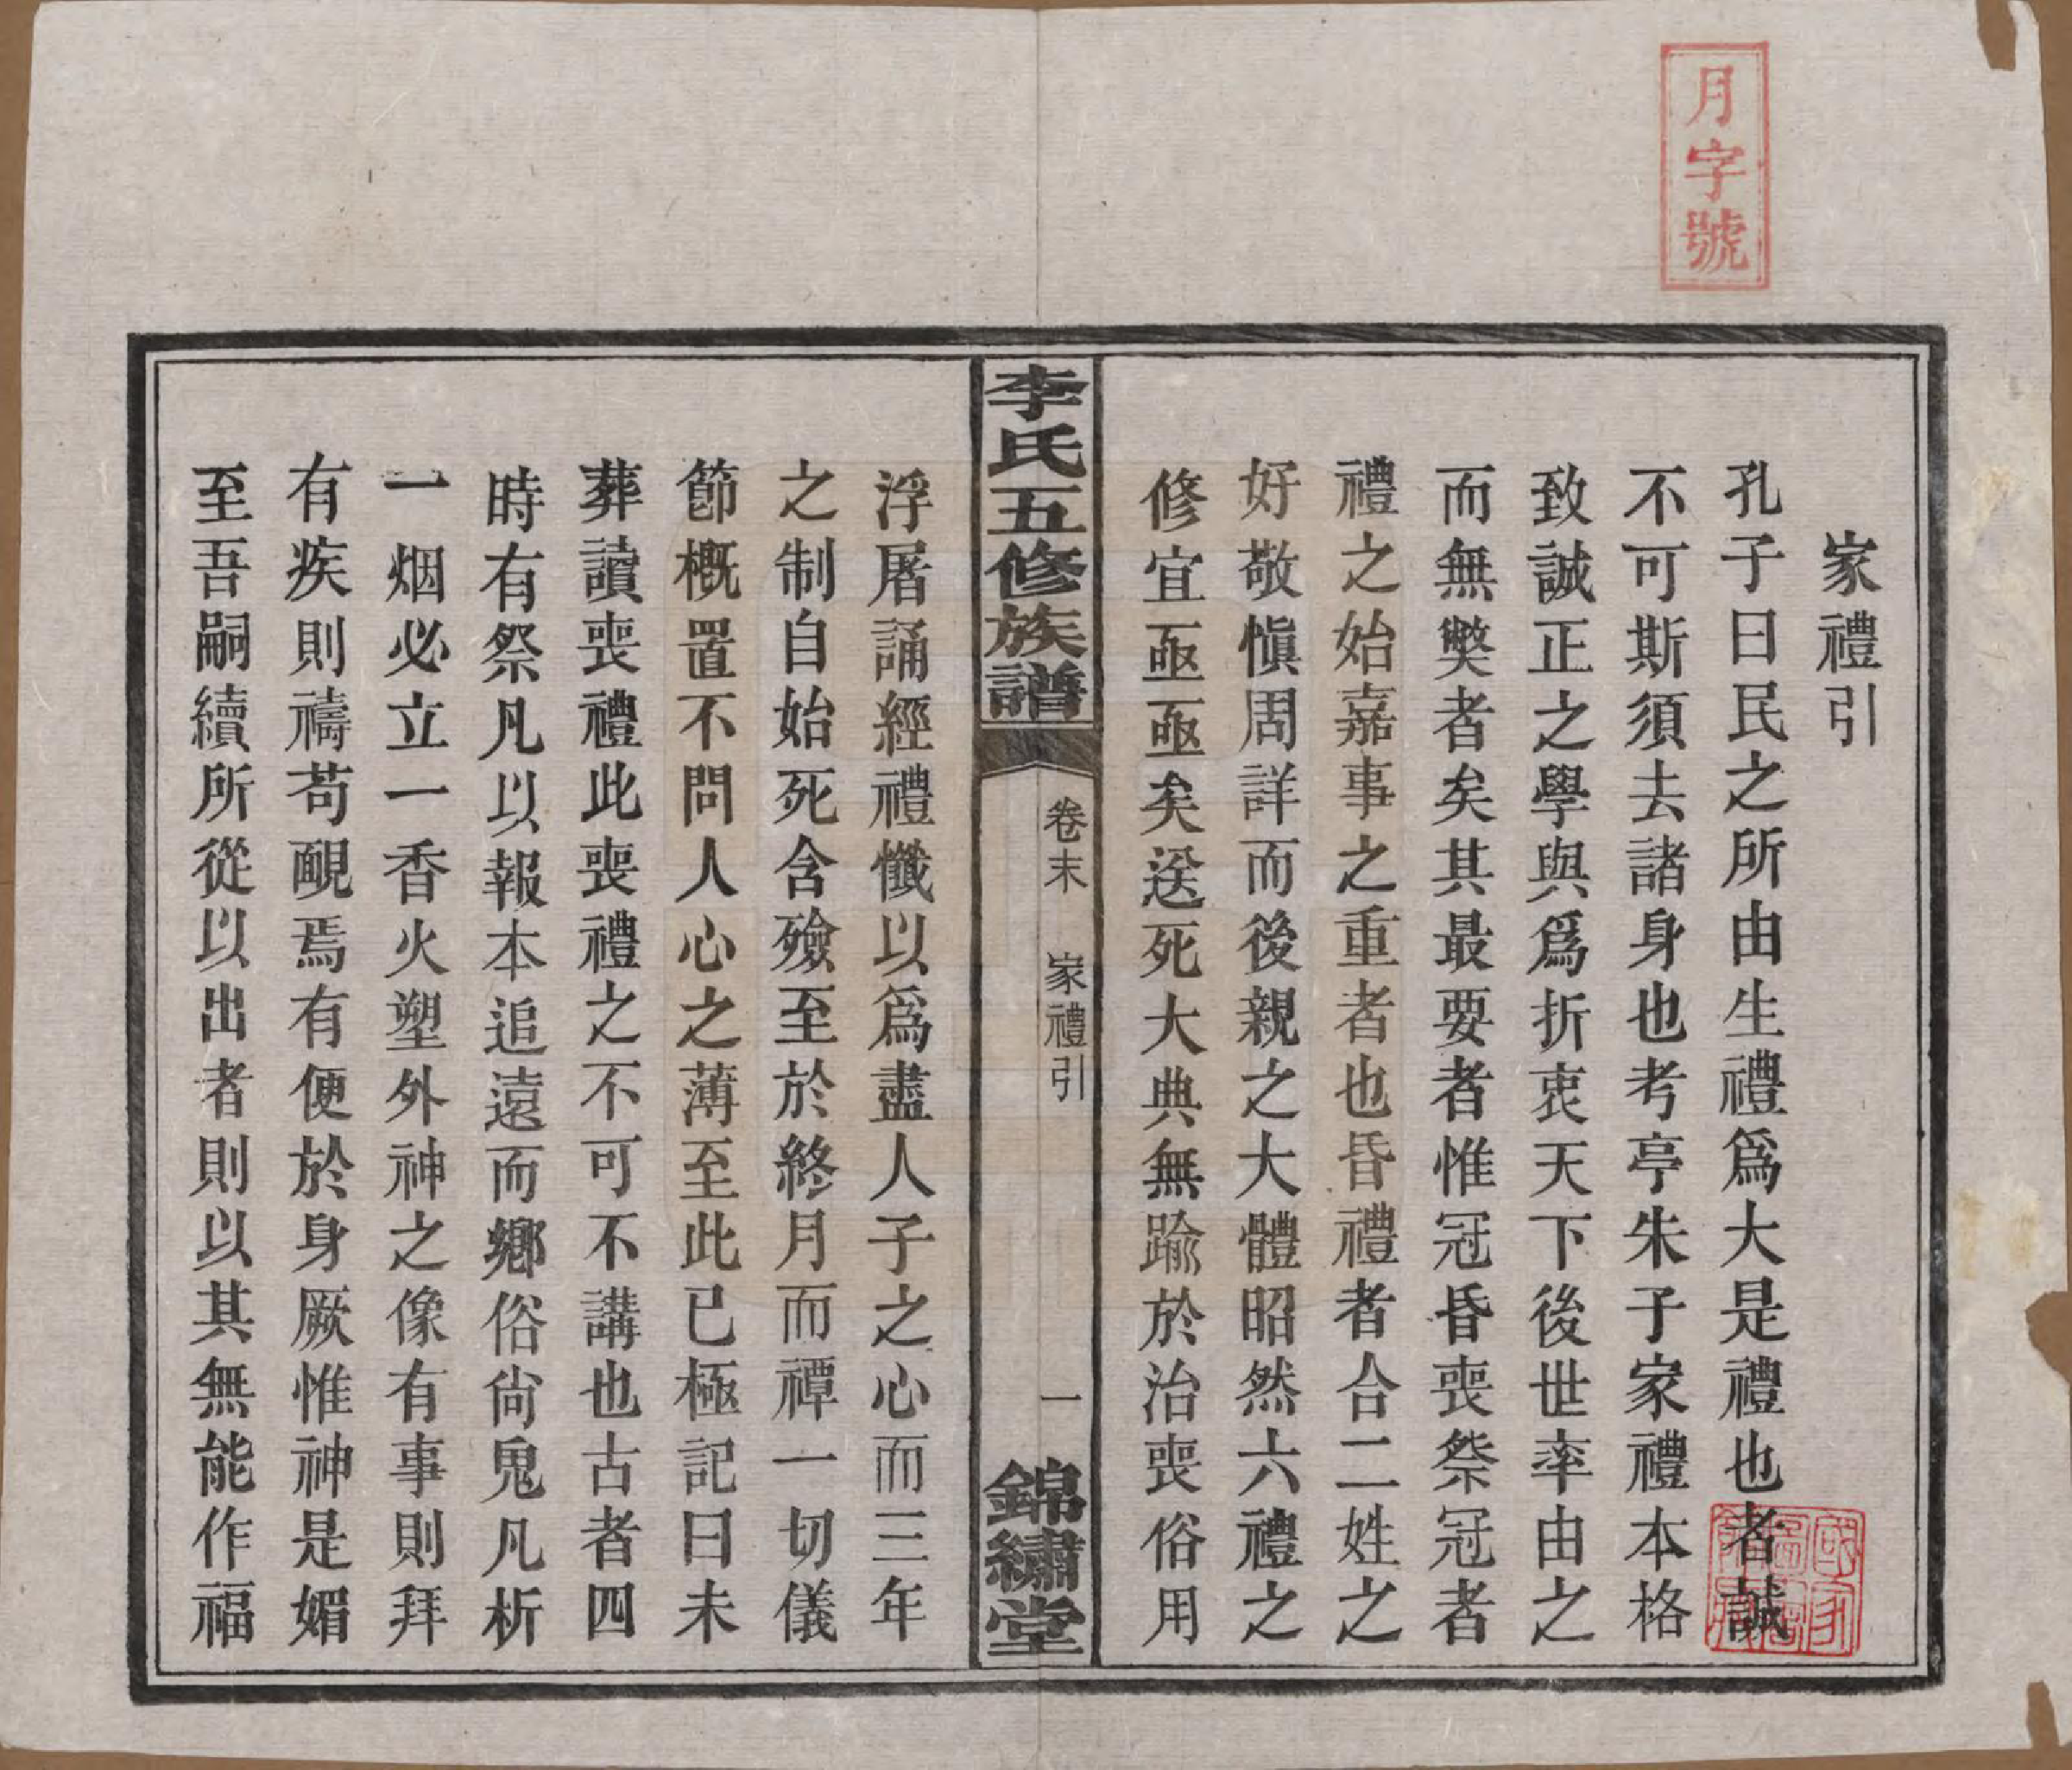 月字號
家禮引
孔子曰民之所由生禮爲大是禮也者誠
不可斯須去諸身也考亭朱子家禮本格
致誠正之學與爲折衷天下後世率由之
而無獘者矣其最要者惟冠昏喪祭冠者
禮之始嘉事之重者也昏禮者合二姓之
好敬愼周詳而後親之大體昭然六禮之
修宜亟亟矣送死大典無踰於治喪俗用
李氏五修族譜
卷末 家禮引
一
錦繡堂
浮屠誦經禮懺以爲盡人子之心而三年
之制自始死含殮至於終月而禫一切儀
節概置不問人心之薄至此已極記曰未
葬讀喪禮此喪禮之不可不講也古者四
時有祭凡以報本追遠而鄉俗尙鬼凡析
一烟必立一香火塑外神之像有事則拜
有疾則禱苟覼焉有便於身厥惟神是媚
至吾嗣續所從以出者則以其無能作福